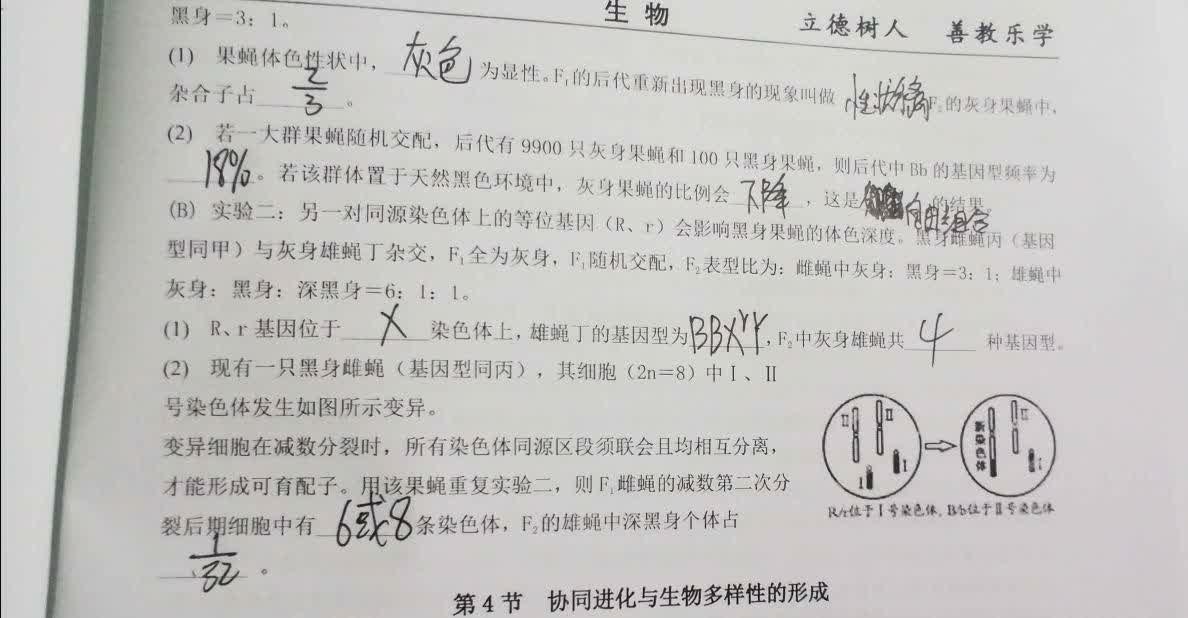 生物
立德树人 善教乐学
黑身=3：1。
(1) 果蝇体色性状中，灰色为显性。F₁的后代重新出现黑身的现象叫做性状分离F₂的灰身果蝇中，
杂合子占2/3。
(2) 若一大群果蝇随机交配，后代有9900只灰身果蝇和100只黑身果蝇，则后代中Bb的基因型频率为
18%。若该群体置于天然黑色环境中，灰身果蝇的比例会下降，这是 的结果。
自由组合
(B) 实验二：另一对同源染色体上的等位基因（R、r）会影响黑身果蝇的体色深度。黑身雌蝇丙（基因
型同甲）与灰身雄蝇丁杂交，F₁全为灰身，F₁随机交配，F₂表型比为：雌蝇中灰身：黑身=3：1；雄蝇中
灰身：黑身：深黑身=6：1：1。
(1) R、r基因位于X染色体上，雄蝇丁的基因型为BBXʳY，F₂中灰身雄蝇共4种基因型。
(2) 现有一只黑身雌蝇（基因型同丙），其细胞（2n=8）中Ⅰ、Ⅱ
号染色体发生如图所示变异。
变异细胞在减数分裂时，所有染色体同源区段须联会且均相互分离，
才能形成可育配子。用该果蝇重复实验二，则F₁雌蝇的减数第二次分
裂后期细胞中有6或8条染色体，F₂的雄蝇中深黑身个体占
1/32。
Ⅱ Ⅱ Ⅰ Ⅰ
新染色体 Ⅱ Ⅰ
R/r位于Ⅰ号染色体，B/b位于Ⅱ号染色体
第4节 协同进化与生物多样性的形成